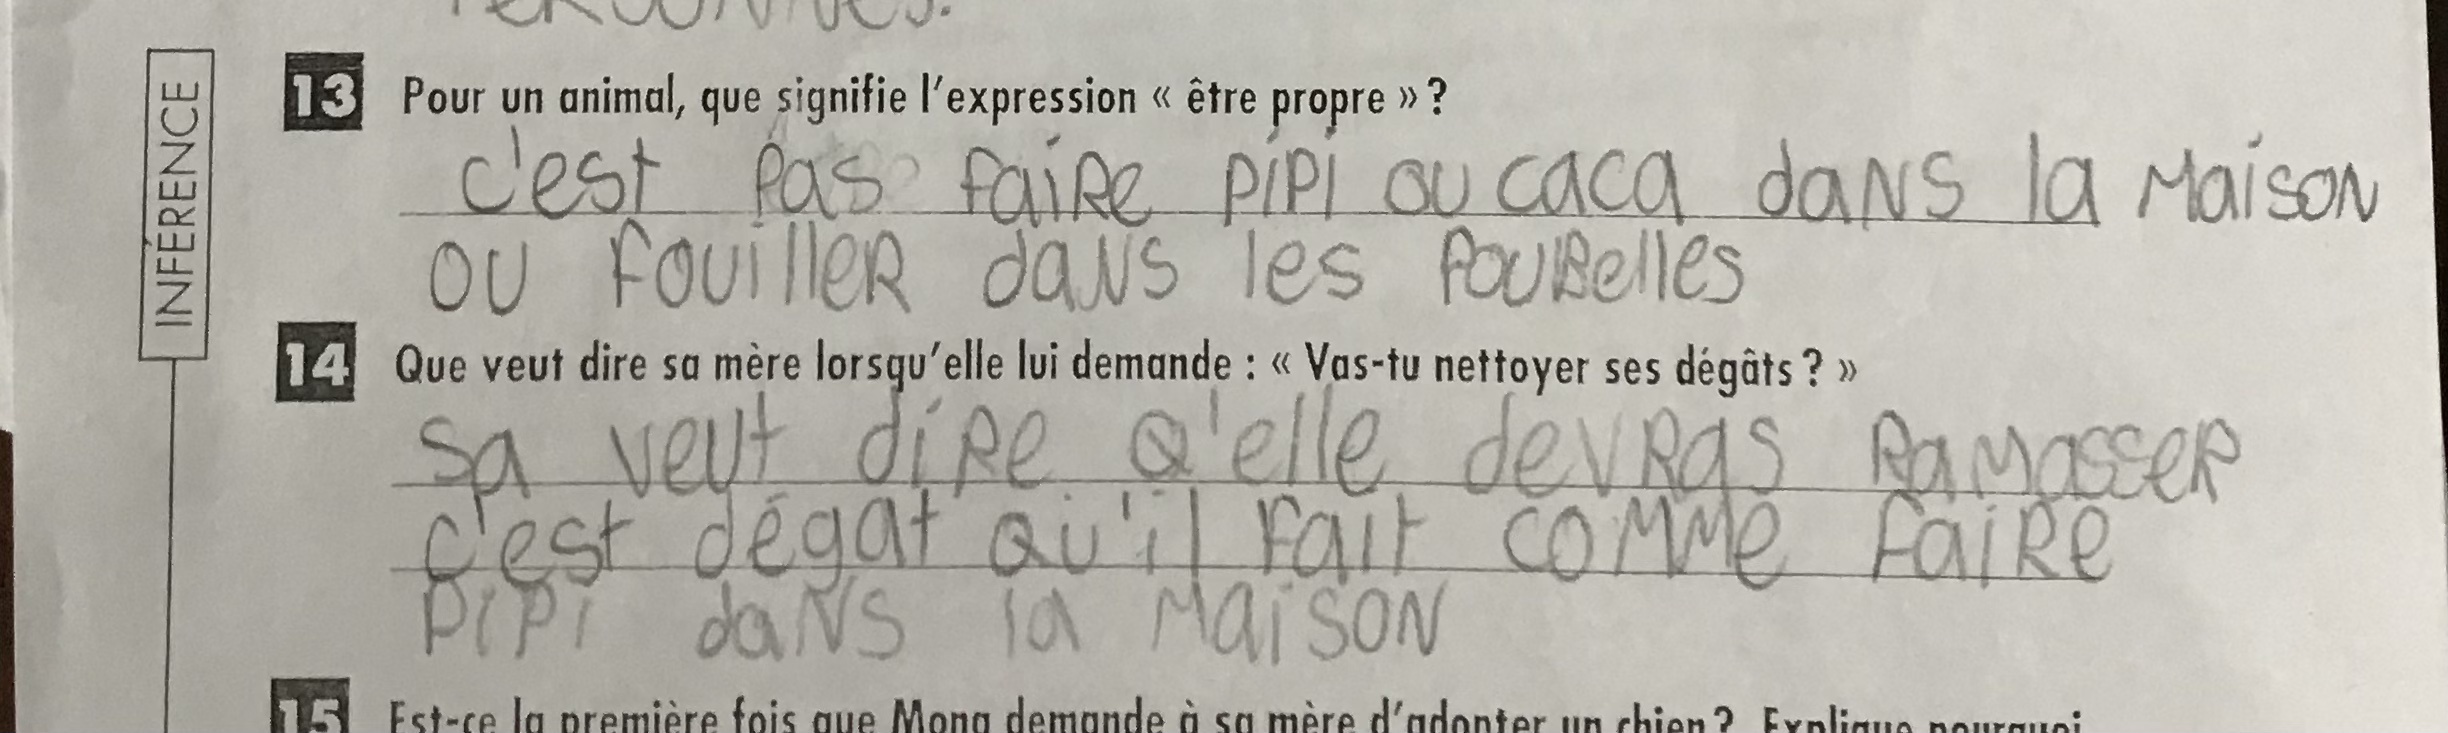 PERSONNES.
INFÉRENCE
13 Pour un animal, que signifie l'expression « être propre » ?
c'est pas faire pipi ou caca dans la maison
ou fouiller dans les poubelles
14 Que veut dire sa mère lorsqu'elle lui demande : « Vas-tu nettoyer ses dégâts ? »
sa veut dire Q'elle devras ramasser
c'est dégat qu'il fait comme faire
pipi dans la maison
15 Est-ce la première fois que Mona demande à sa mère d'adopter un chien ? Explique pourquoi.